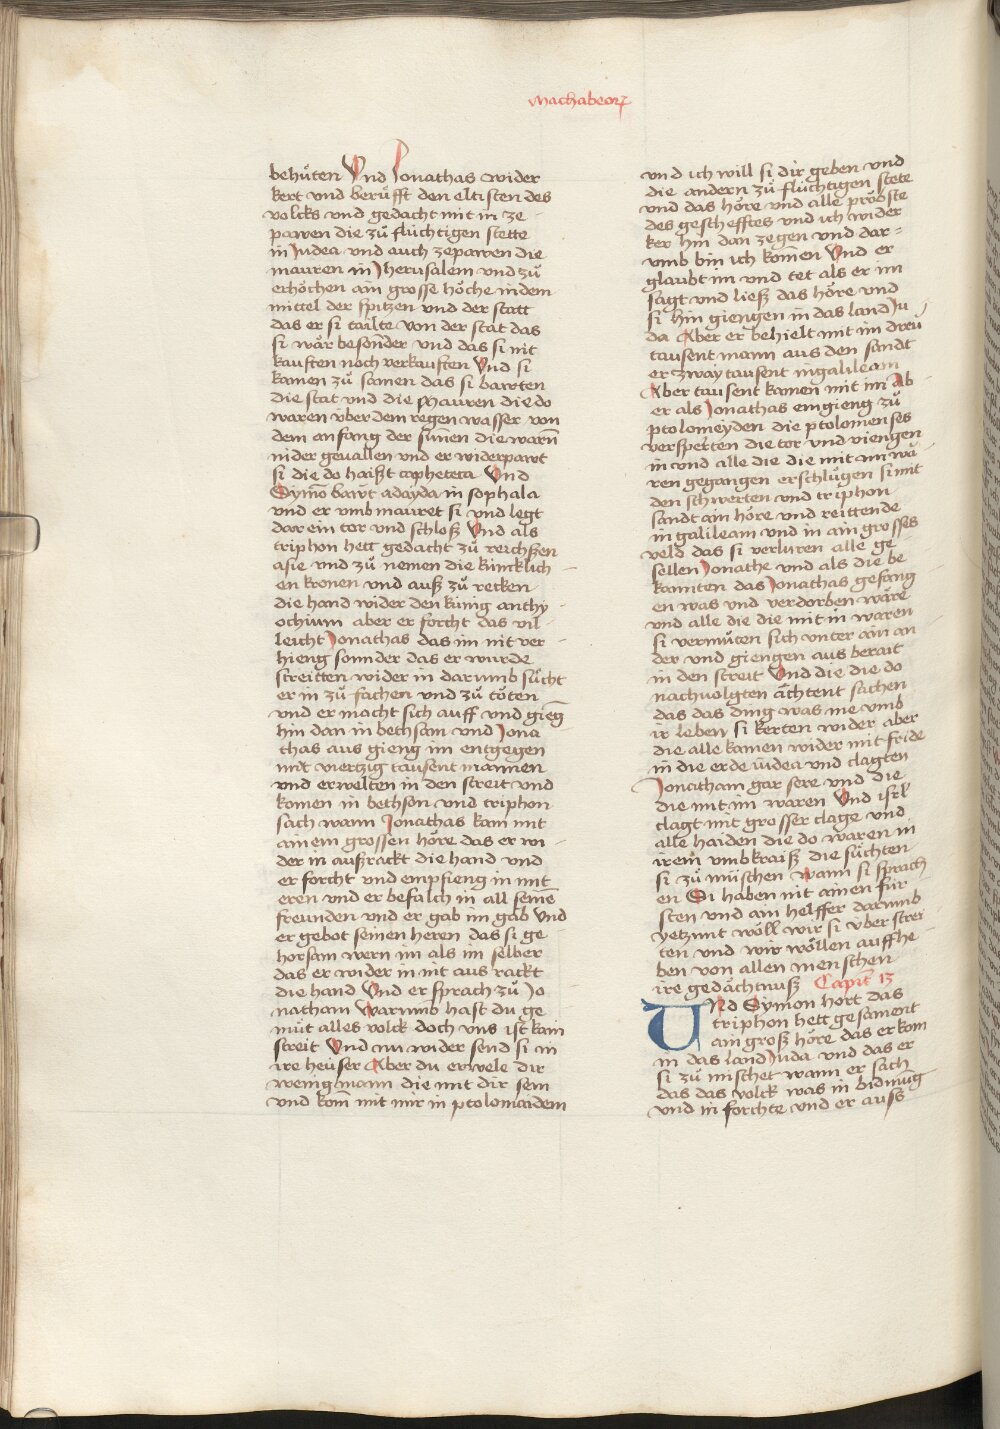 Machabeoꝝ
behuͤten Vnd Jonathas wider
kert vnd beruͤfft den eltisten des
volcks vnd gedacht mit in ze
pawen die zuͦ fluchtigen stette
in Judea vnd auch zepawen die
mauren in Jherusalem vnd zuͦ
erhoͤchen ain grosse hoͤche in dem
mittel der spitzen vnd der statt
das er si tailte von der stat das
si waͤr besonder vnd das si nit
kauften noch verkauften Vnd si
kamen zuͦ samen das si bawten
die stat vnd die Mauren die do
waren vber dem regen wasser von
dem anfang der sunnen die warn̄
nider geuallen vnd er widerpawt
si die do haißt capheteta Vnd
Symō bawt adayda in sophala
vnd er vmb mauret si vnd legt
dar ein tor vnd schloß Vnd als
triphon hett gedacht zuͦ reichßen
asie vnd zuͦ nemen die kuncklich
en kronen vnd auß zuͦ recken
die hand wider den kúnig anthy
ochium aber er forcht das vil
leicht Jonathas das im nit ver
hieng sonnder das er wurde
streitten wider in darumb suͤcht
er in zuͦ fachen vnd zuͦ toͤten
vnd er macht sich auff vnd gieḡ
hin dan in bethsam vnd Jona
thas aus gieng im entgegen
mit viertzig tausent mannen
vnd erwelten in den streit vnd
komen in bethson vnd triphon
sach wann Jonathas kam mit
ainem grossen hoͤre das er wi
der in außrackt die hand vnd
er forcht vnd empfieng in mit
eren vnd er befalch in all seinē
freunden vnd er gab im gab Vnd
er gebot seinen heren das si ge
horsam wern im als im selber
das er wider in nit aus rackt
die hand Vnd er sprach zuͦ Jo
natham Warumb hast du ge
muͤt alles volck doch vns ist kain
streit Vnd nu wider send si in
ire heuser Aber du erwele dir
wenig mann die mit dir sein
vnd kom̄ mit mir in ptolomaidem
vnd ich will si dir geben vnd
die andern zuͦ fluchtigen stete
vnd das hoͤre vnd alle proͤbste
des geschefftes vnd ich wider
ker hin dan zegen vnd dar=
vmb bin ich kom̄en Vnd er
glaubt im vnd tet als er im
sagt vnd ließ das hoͤre vnd
si hin giengen in das land Ju
da Aber er behielt mit im dreu
tausent mann aus den sandt
er zway tausent in galileam
Aber tausent kamen mit im Ab
er als Jonathas eingieng zuͦ
ptolomeyden die ptolomenses
versperten die tor vnd viengen
in vnd alle die die mit im waͤ
ren gegangen erschluͤgen si mit
den schwerten vnd triphon
sandt ain hoͤre vnd reittende
in galileam vnd in ain grosses
veld das si verluren alle ge
sellen Jonathe vnd als die be
kannten das Jonathas gefang
en was vnd verdorben waͤre
vnd alle die die mit im waren
si vermuͤten sich vnter ain an
der vnd giengen aus berait
in den streit Vnd die die do
nachuolgten aͤchtent sachen
das das ding was ine vmb
ir leben si kerten wider aber
die alle kamen wider mit fride
in die erde iudea vnd clagten
Jonatham gar sere vnd die
die mit im waren Vnd isrl̄
clagt mit grosser clage vnd
alle haiden die do waren in
irem vmbkraiß die suͤchten
si zuͦ muschen wann si sprach
en Si haben nit ainen fur
sten vnd ain helffer darumb
yetzunt woͤll wir si vber strei
ten vnd wir woͤllen auffhe
ben von allen menschen
ire gedaͤchtnuß Capit̄ 13
VNd Symon hort das
triphon hett gesament
ain groß hoͤre das er kom
in das land Juda vnd das er
si zuͦ mischet wann er sach
das das volck was in bidmūg
vnd in forchte vnd er auff